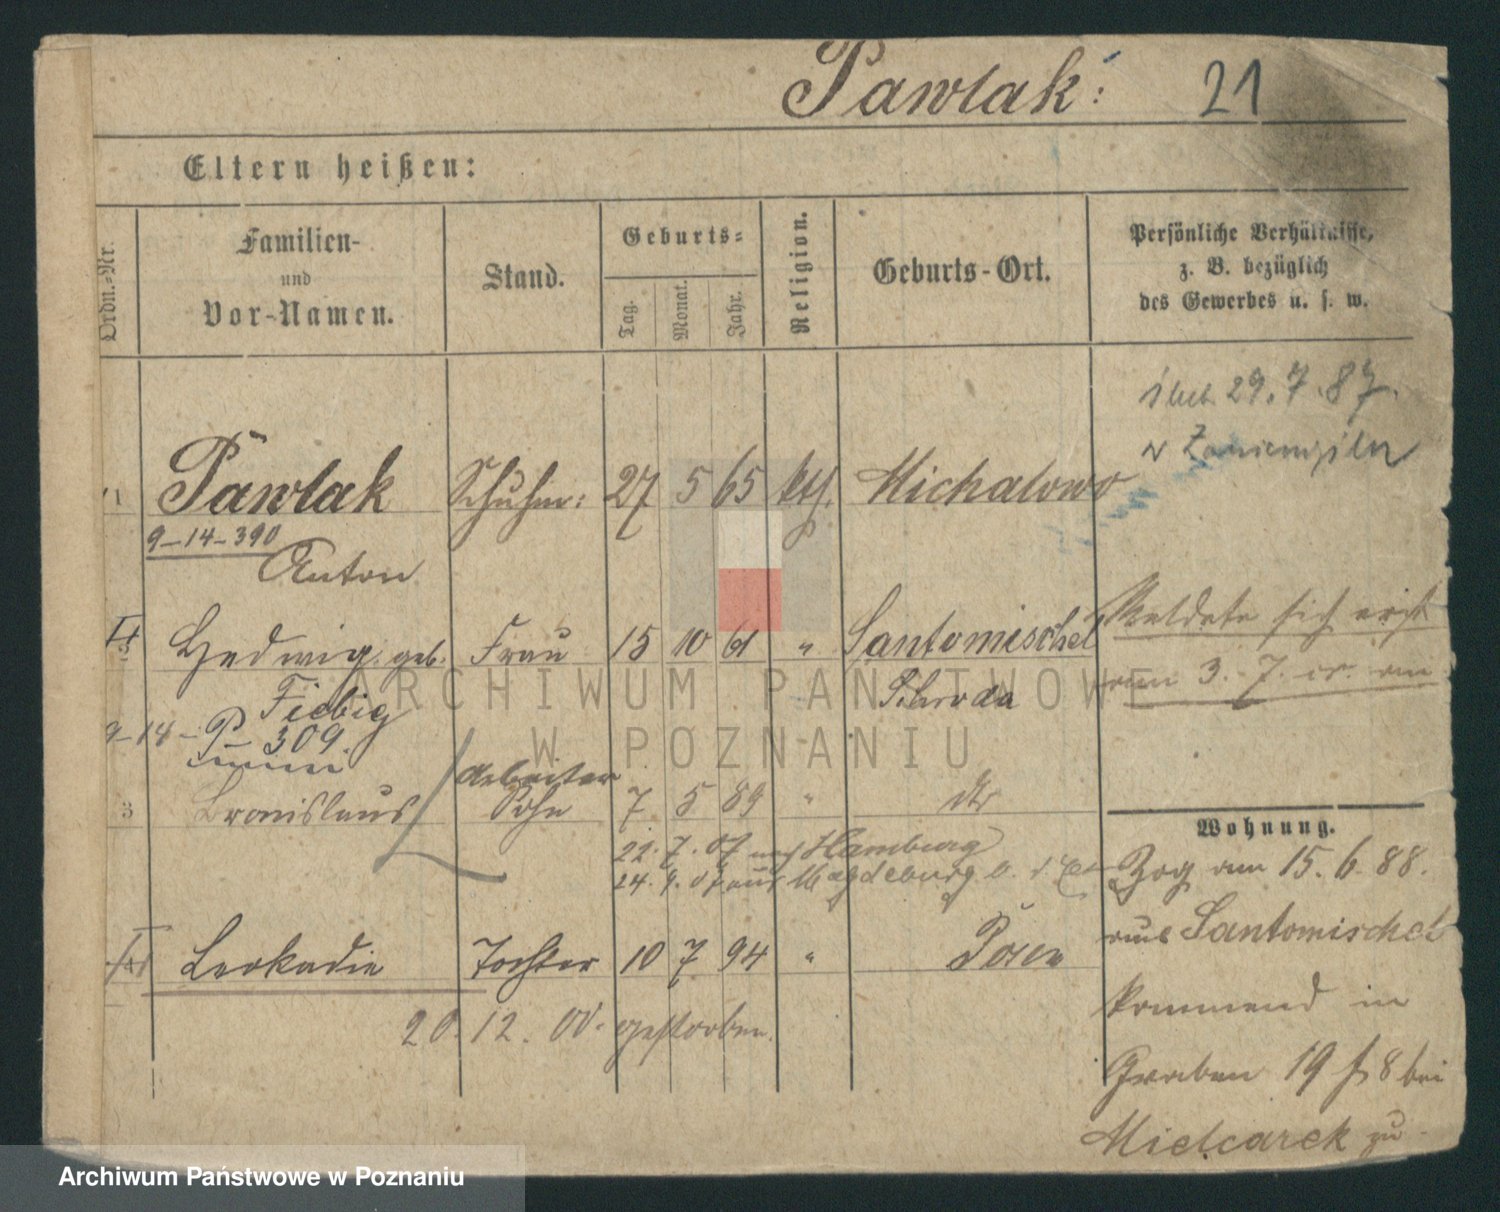 Pawlak: 21
Eltern heißen:
Ordn.-Nr.
Familien-
und
Vor-Namen.
Stand.
Geburts-
Tag.
Monat.
Jahr.
Religion.
Geburts-Ort.
Persönliche Verhältnisse,
z. B. bezüglich
des Gewerbes u. s. w.
29.7.87.
w
1 Pawlak Schuhm: 27 5 65 kth. Michalowo
9-14-390
Anton
Hedwig geb. Frau 15 10 61 " Santomischel
Fiebig Schroda
9-14-P-309.
Meldete sich erst
am 3. 7. cr. an
Arbeiter
3 Bronislaus Sohn 7 5 89 " dto
22. 7. 07 nach Hamburg
24. 9. 07 aus Magdeburg
Leokadie Tochter 10 7 94 " Posen
20. 12. 00. gestorben.
Wohnung.
Zog am 15. 6. 88.
aus Santomischel
kommend in
Graben 19 f 8 bei
Mielcarek zu
ARCHIWUM PAŃSTWOWE
W POZNANIU
Archiwum Państwowe w Poznaniu